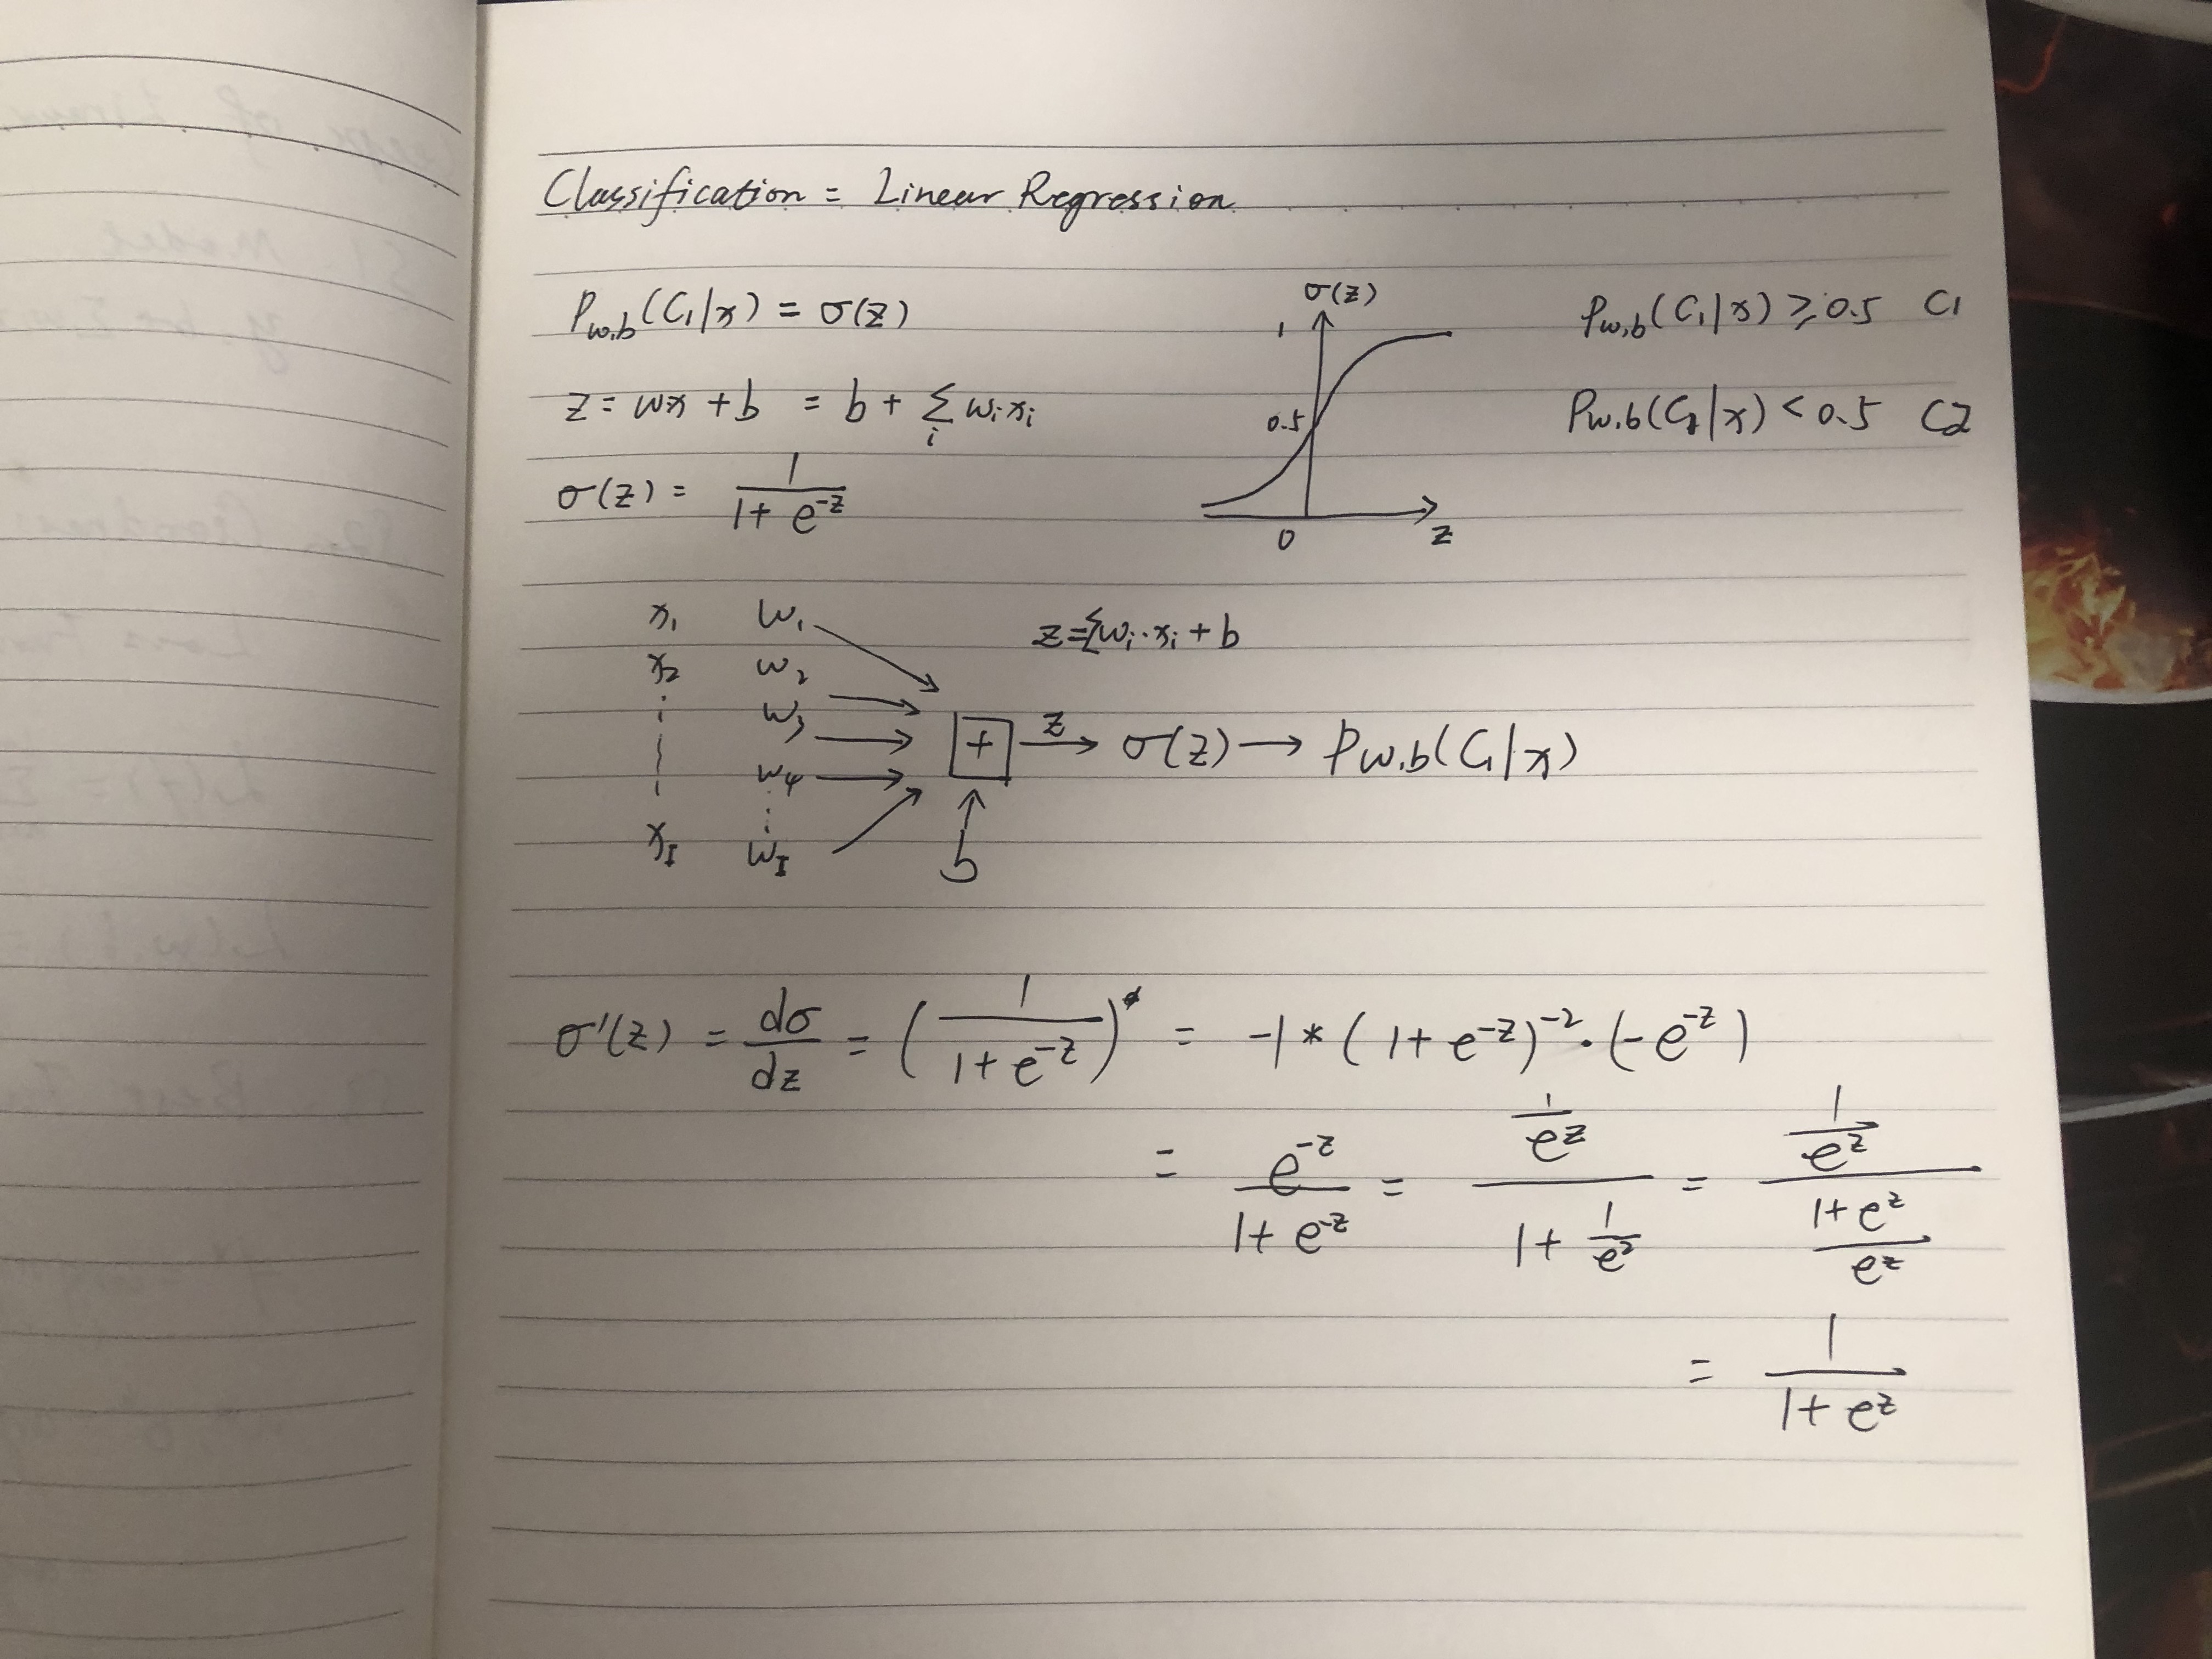 Classification = Linear Regression
P_{w,b}(C_1|x) = σ(z)
z = wx + b = b + Σ_i w_i x_i
σ(z) = 1/(1+e^{-z})
σ(z)
1
0.5
0
z
P_{w,b}(C_1|x) ≥ 0.5 C_1
P_{w,b}(C_1|x) < 0.5 C_2
x_1 w_1
x_2 w_2
w_3
w_4
x_I w_I
z = Σ w_i · x_i + b
+ →^z σ(z) → P_{w,b}(C_1|x)
b
σ'(z) = dσ/dz = (1/(1+e^{-z}))' = -1 * (1+e^{-z})^{-2} · (-e^{-z})
= e^{-z}/(1+e^{-z}) = (1/e^z)/(1+1/e^z) = (1/e^z)/((1+e^z)/e^z)
= 1/(1+e^z)